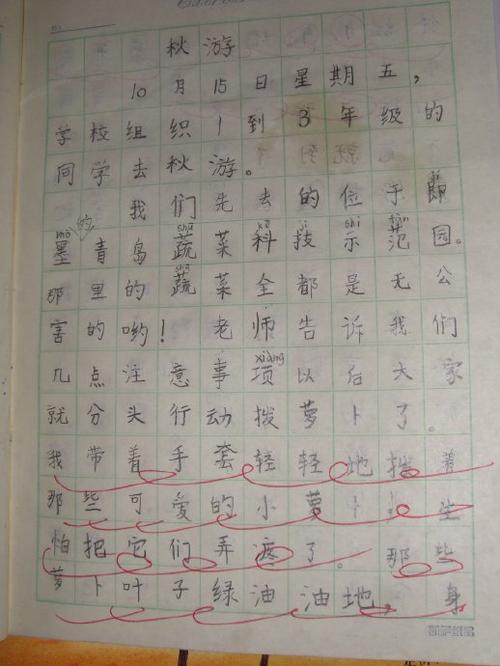 秋游
10月15日星期五,
学校组织1到3年级的
同学去秋游。
我们先去的位于即
墨的青岛蔬菜科技示范园。
那里的蔬菜全都是无公
害的哟!老师告诉我们
几点注意事项以后大家
就分头行动拨萝卜了。
我带着手套轻轻地拨着
那些可爱的小萝卜,生
怕把它们弄疼了。那些
萝卜叶子绿油油地,身